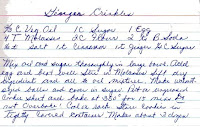 Ginger Crinkles
2/3 C Veg Oil 1 C Sugar 1 Egg
4 T Molasses 2 C Flour 2 t B. Soda
1/2 t Salt 1 t Cinnamon 1 t Ginger 1/4 C Sugar
Mix oil and sugar thoroughly in large bowl. Add
egg and beat well. Stir in Molasses. Sift dry
ingredients and add to oil mixture. Make walnut
sized balls and cover in sugar. Put on ungreased
cookie sheet and bake at 350° for 15 min. Do
not Overbake! Cookies. Store Cookies in
Tightly Covered Container. Makes about 3 dozen